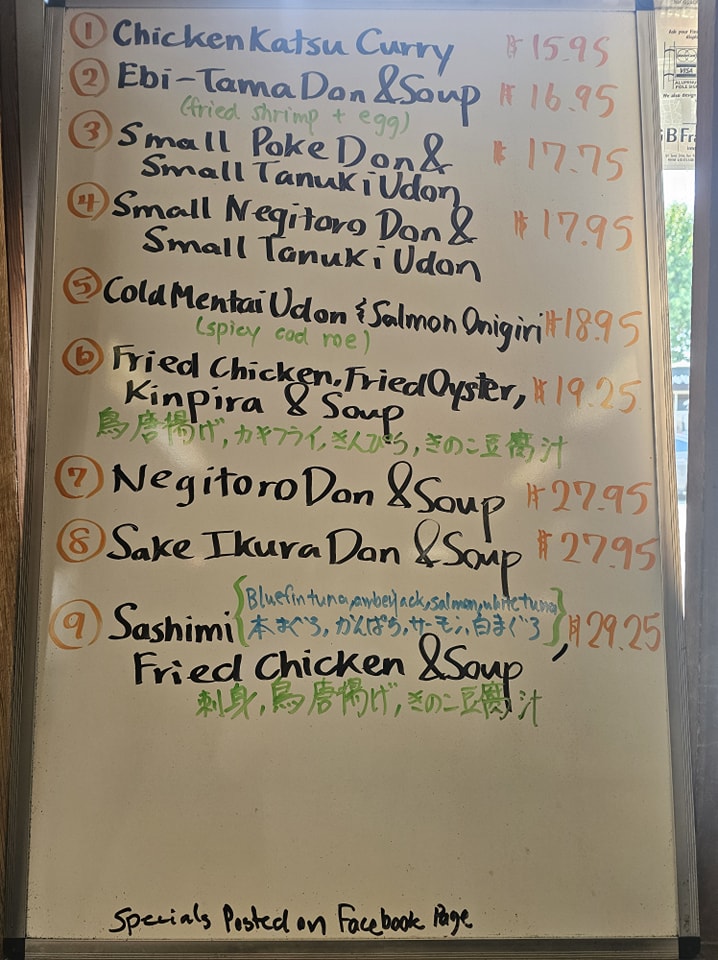 ① Chicken Katsu Curry # 15.95
② Ebi-Tama Don & Soup # 16.95
(fried shrimp + egg)
③ Small Poke Don & # 17.75
Small Tanuki Udon
④ Small Negitoro Don & # 17.95
Small Tanuki Udon
⑤ Cold Mentai Udon & Salmon Onigiri # 18.95
(spicy cod roe)
⑥ Fried Chicken, Fried Oyster, # 19.25
Kinpira & Soup
鳥唐揚げ, カキフライ, きんぴら, きのこ豆腐汁
⑦ Negitoro Don & Soup # 27.95
⑧ Sake Ikura Don & Soup # 27.95
⑨ Sashimi { Bluefin tuna, amberjack, salmon, white tuna
本まぐろ, かんぱち, サーモン, 白まぐろ }, # 29.25
Fried Chicken & Soup
刺身, 鳥唐揚げ, きのこ豆腐汁
Specials Posted on Facebook Page
VISA